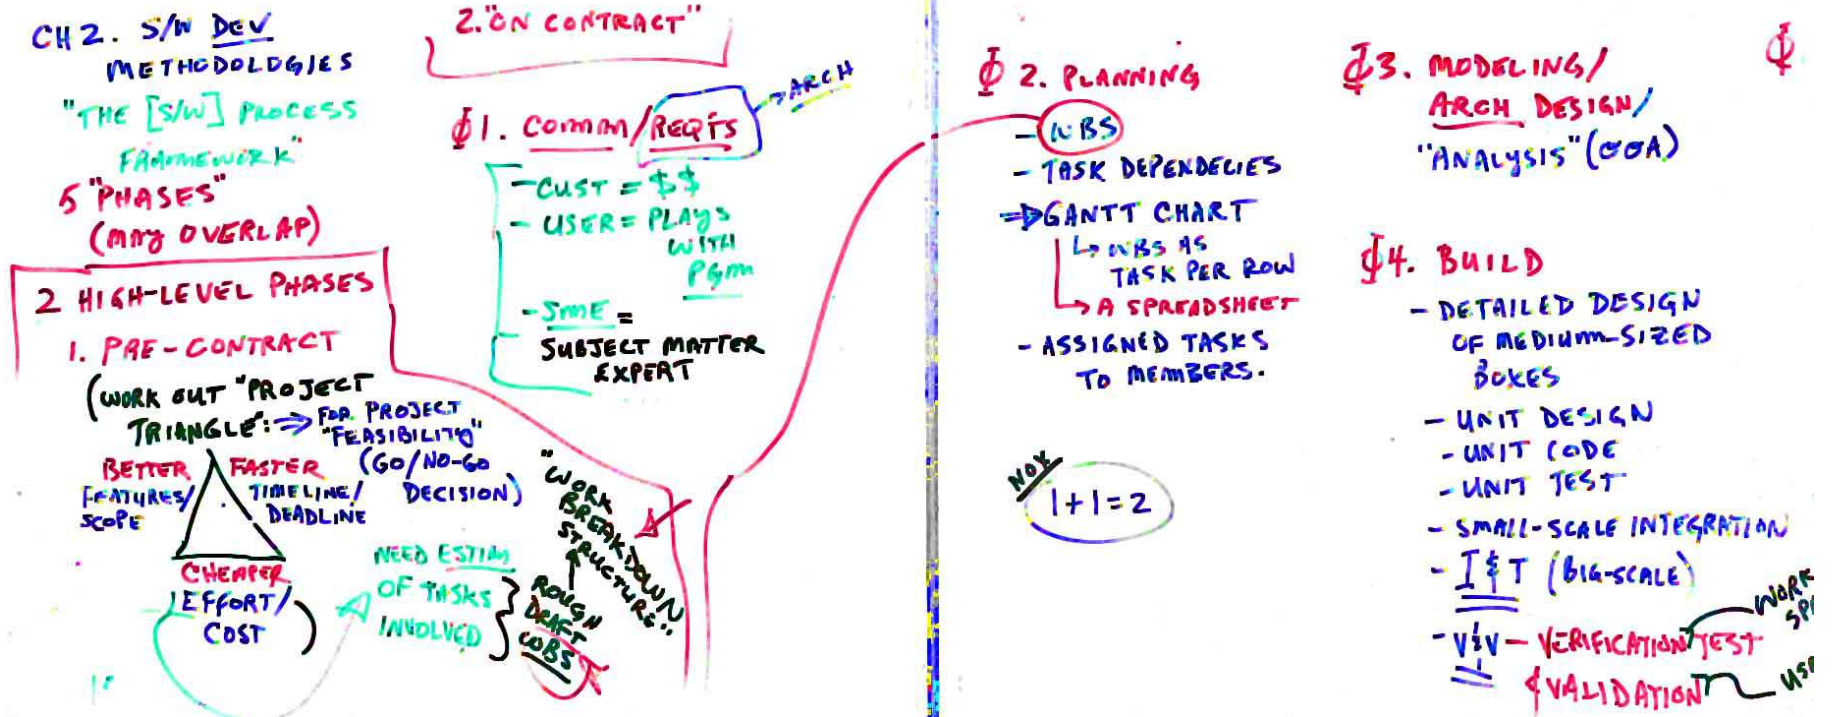 CH 2. S/W DEV
METHODOLOGIES
"THE [S/W] PROCESS
FRAMEWORK"
5 "PHASES"
(MAY OVERLAP)
2 HIGH-LEVEL PHASES
1. PRE-CONTRACT
(WORK OUT "PROJECT
TRIANGLE":
FOR PROJECT
"FEASIBILITY"
(GO/NO-GO
DECISION)
BETTER
FEATURES/
SCOPE
FASTER
TIMELINE/
DEADLINE
CHEAPER
EFFORT/
COST)
NEED ESTIM
OF TASKS
INVOLVED
ROUGH
DRAFT
WBS
"WORK
BREAKDOWN
STRUCTURE"
2. "ON CONTRACT"
Φ1. COMM/REQTS
ARCH
- CUST = $$
- USER = PLAYS
WITH
PGM
- SME =
SUBJECT MATTER
EXPERT
Φ 2. PLANNING
- WBS
- TASK DEPENDECIES
GANTT CHART
WBS AS
TASK PER ROW
A SPREADSHEET
- ASSIGNED TASKS
TO MEMBERS.
NOT
1+1=2
Φ3. MODELING/
ARCH DESIGN/
"ANALYSIS" (OOA)
Φ
Φ4. BUILD
- DETAILED DESIGN
OF MEDIUM-SIZED
BOXES
- UNIT DESIGN
- UNIT CODE
- UNIT TEST
- SMALL-SCALE INTEGRATION
- I & T (BIG-SCALE)
- V&V - VERIFICATION TEST
& VALIDATION